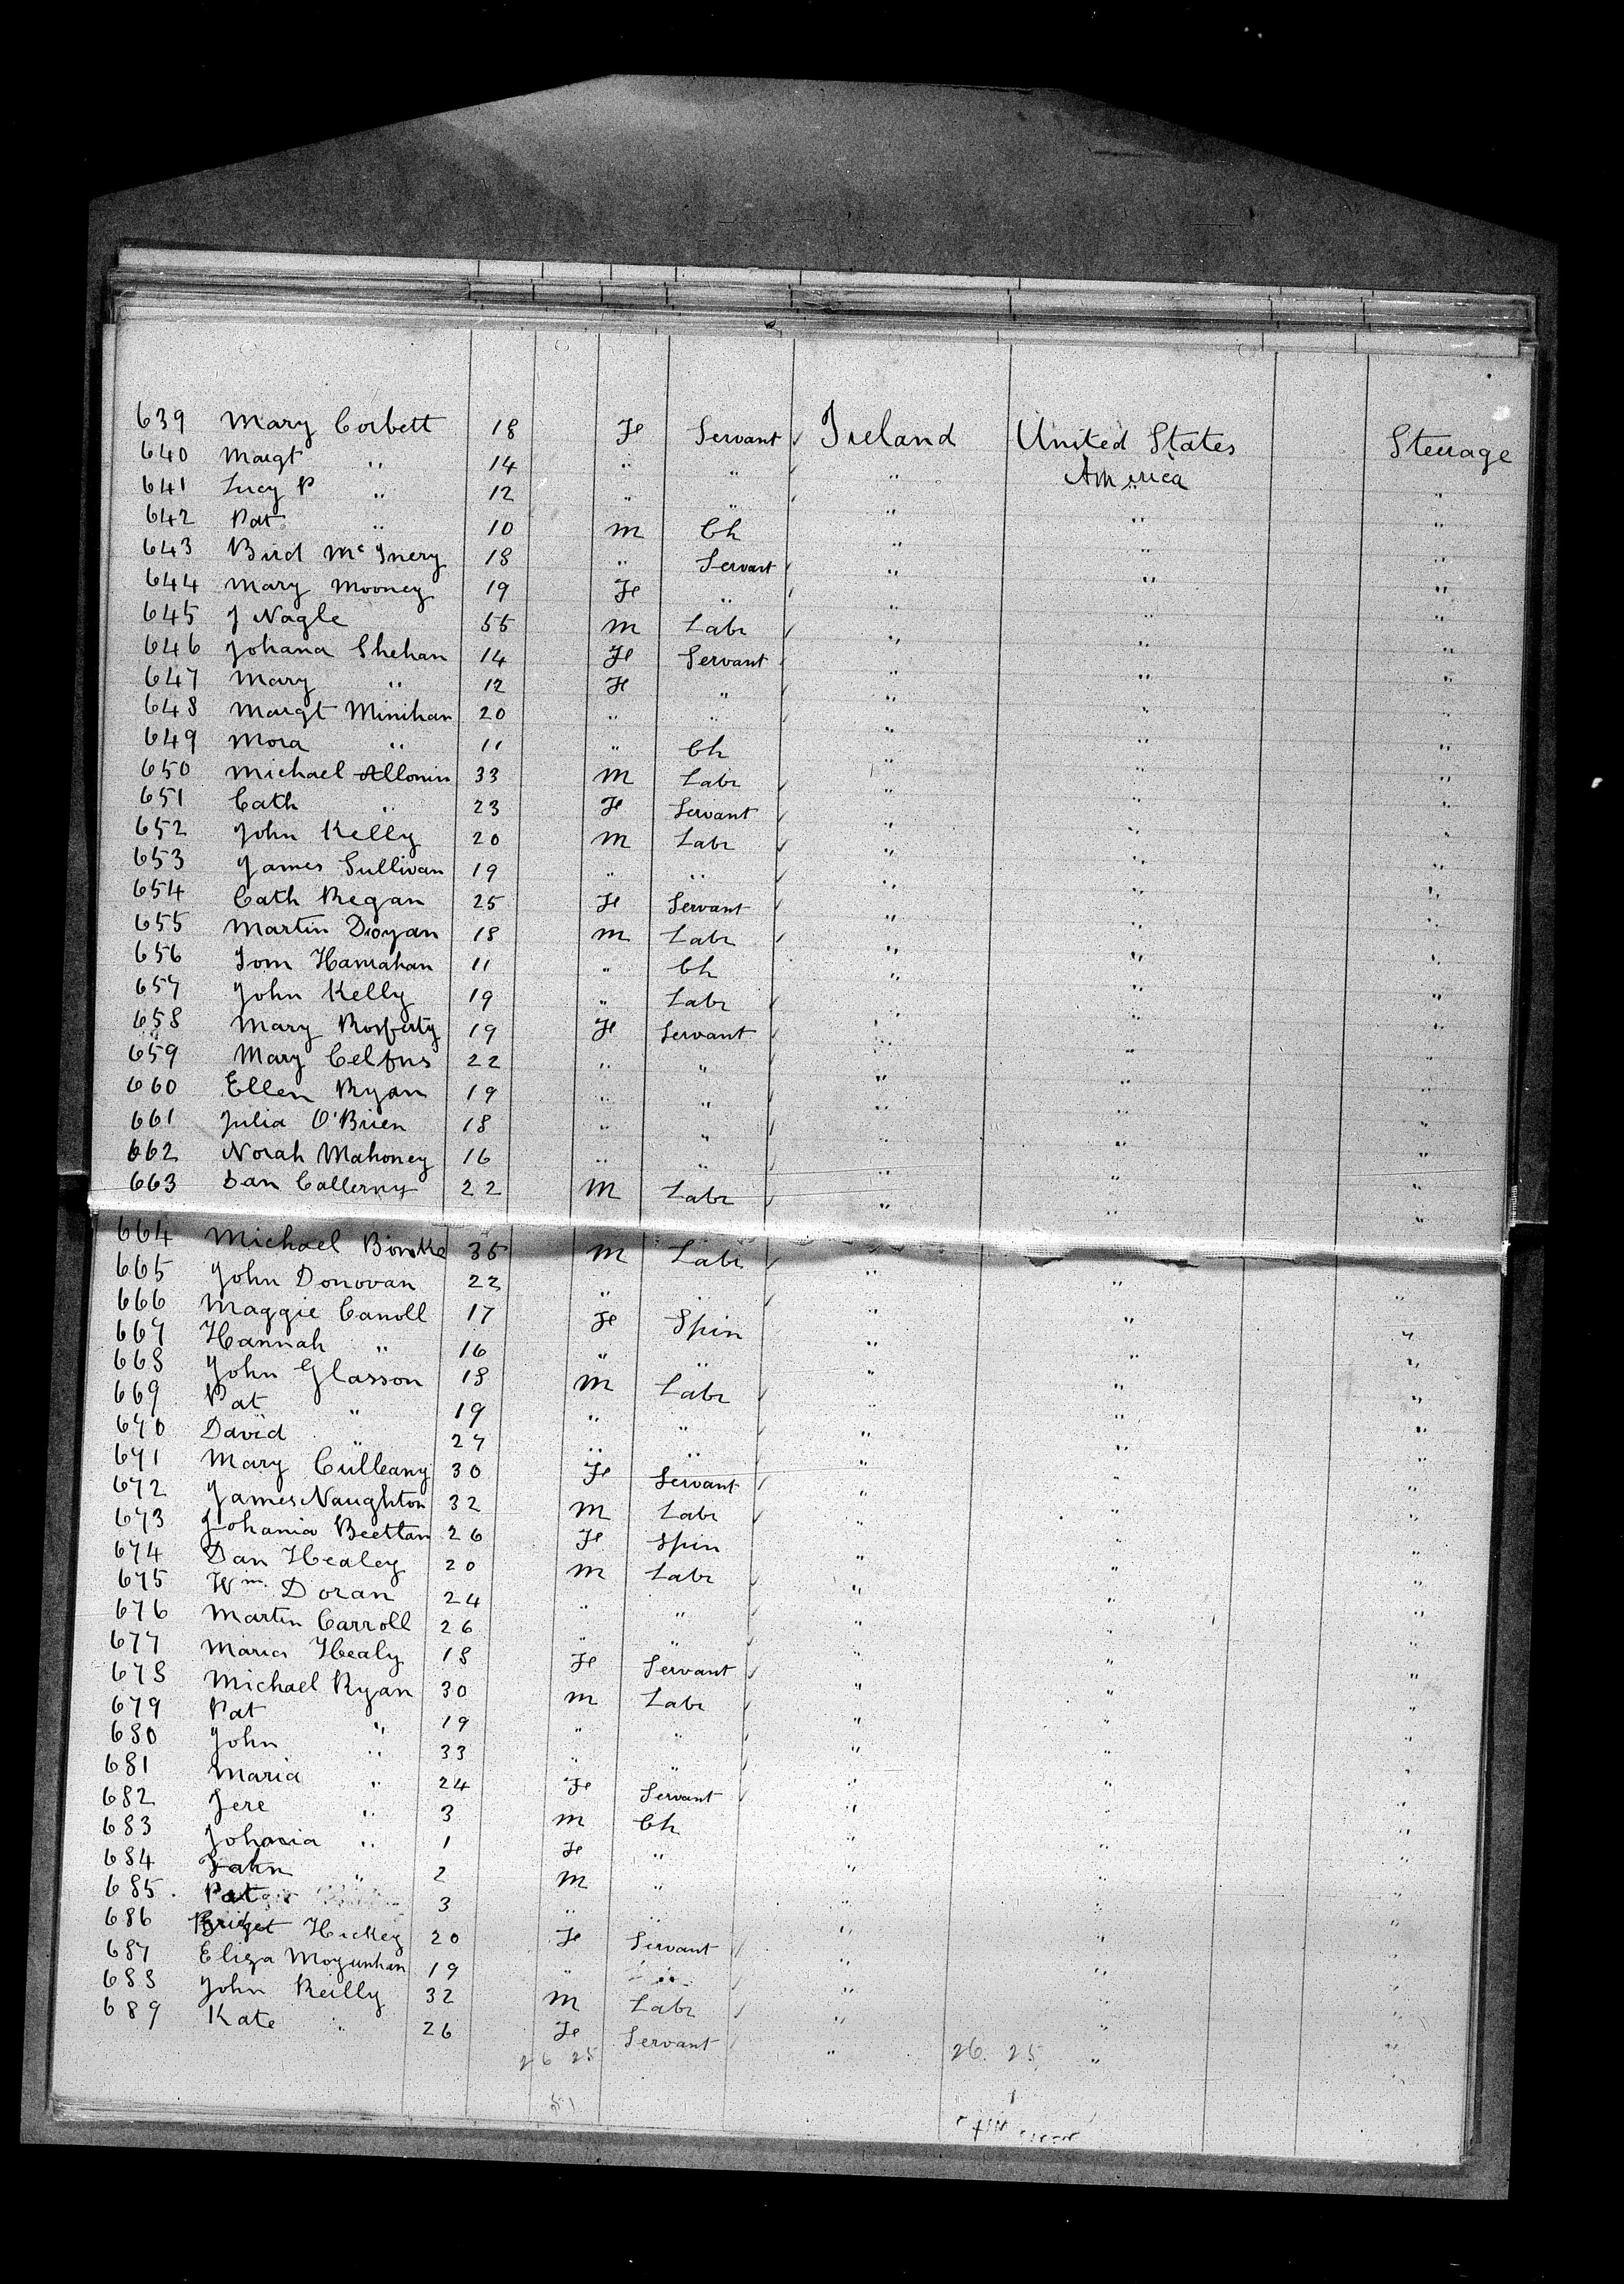 639 Mary Corbett 18 Fe Servant Ireland United States America Steerage
640 Margt " 14 " " " " "
641 Lucy P " 12 " " " " "
642 Pat " 10 M Ch " " "
643 Bird McInery 18 " Servant " " "
644 Mary Mooney 19 Fe " " " "
645 J Nagle 55 M Labr " " "
646 Johana Shehan 14 Fe Servant " " "
647 Mary " 12 Fe " " " "
648 Margt Minihan 20 " " " " "
649 Mora " 11 " Ch " " "
650 Michael Allonin 33 M Labr " " "
651 Cath " 23 Fe Servant " " "
652 John Kelly 20 M Labr " " "
653 James Sullivan 19 " " " " "
654 Cath Regan 25 Fe Servant " " "
655 Martin Doyan 18 M Labr " " "
656 Tom Hanrahan 11 " Ch " " "
657 John Kelly 19 " Labr " " "
658 Mary 19 Fe Servant " " "
659 Mary 22 " " " " "
660 Ellen Ryan 19 " " " " "
661 Julia O'Brien 18 " " " " "
662 Norah Mahoney 16 " " " " "
663 Dan Callerny 22 M Labr " " "
664 Michael Bourke 35 M Labr " " "
665 John Donovan 22 " " " " "
666 Maggie Carroll 17 Fe Spin " " "
667 Hannah " 16 " " " " "
668 John Glasson 18 M Labr " " "
669 Pat " 19 " " " " "
670 David " 27 " " " " "
671 Mary Culleany 30 Fe Servant " " "
672 James Naughton 32 M Labr " " "
673 Johania Beettan 26 Fe Spin " " "
674 Dan Healey 20 M Labr " " "
675 Wm Doran 24 " " " " "
676 Martin Carroll 26 " " " " "
677 Maria Healy 18 Fe Servant " " "
678 Michael Ryan 30 M Labr " " "
679 Pat " 19 " " " " "
680 John " 33 " " " " "
681 Maria " 24 Fe Servant " " "
682 Jere " 3 M Ch " " "
683 Johania " 1 Fe " " " "
684 John " 2 M " " " "
685 Pat 3 " " " " "
686 Bridget Hickey 20 Fe Servant " " "
687 Eliza Moyunhan 19 " " " " "
688 John Reilly 32 M Labr " " "
689 Kate " 26 Fe Servant " " "
26 25 26. 25